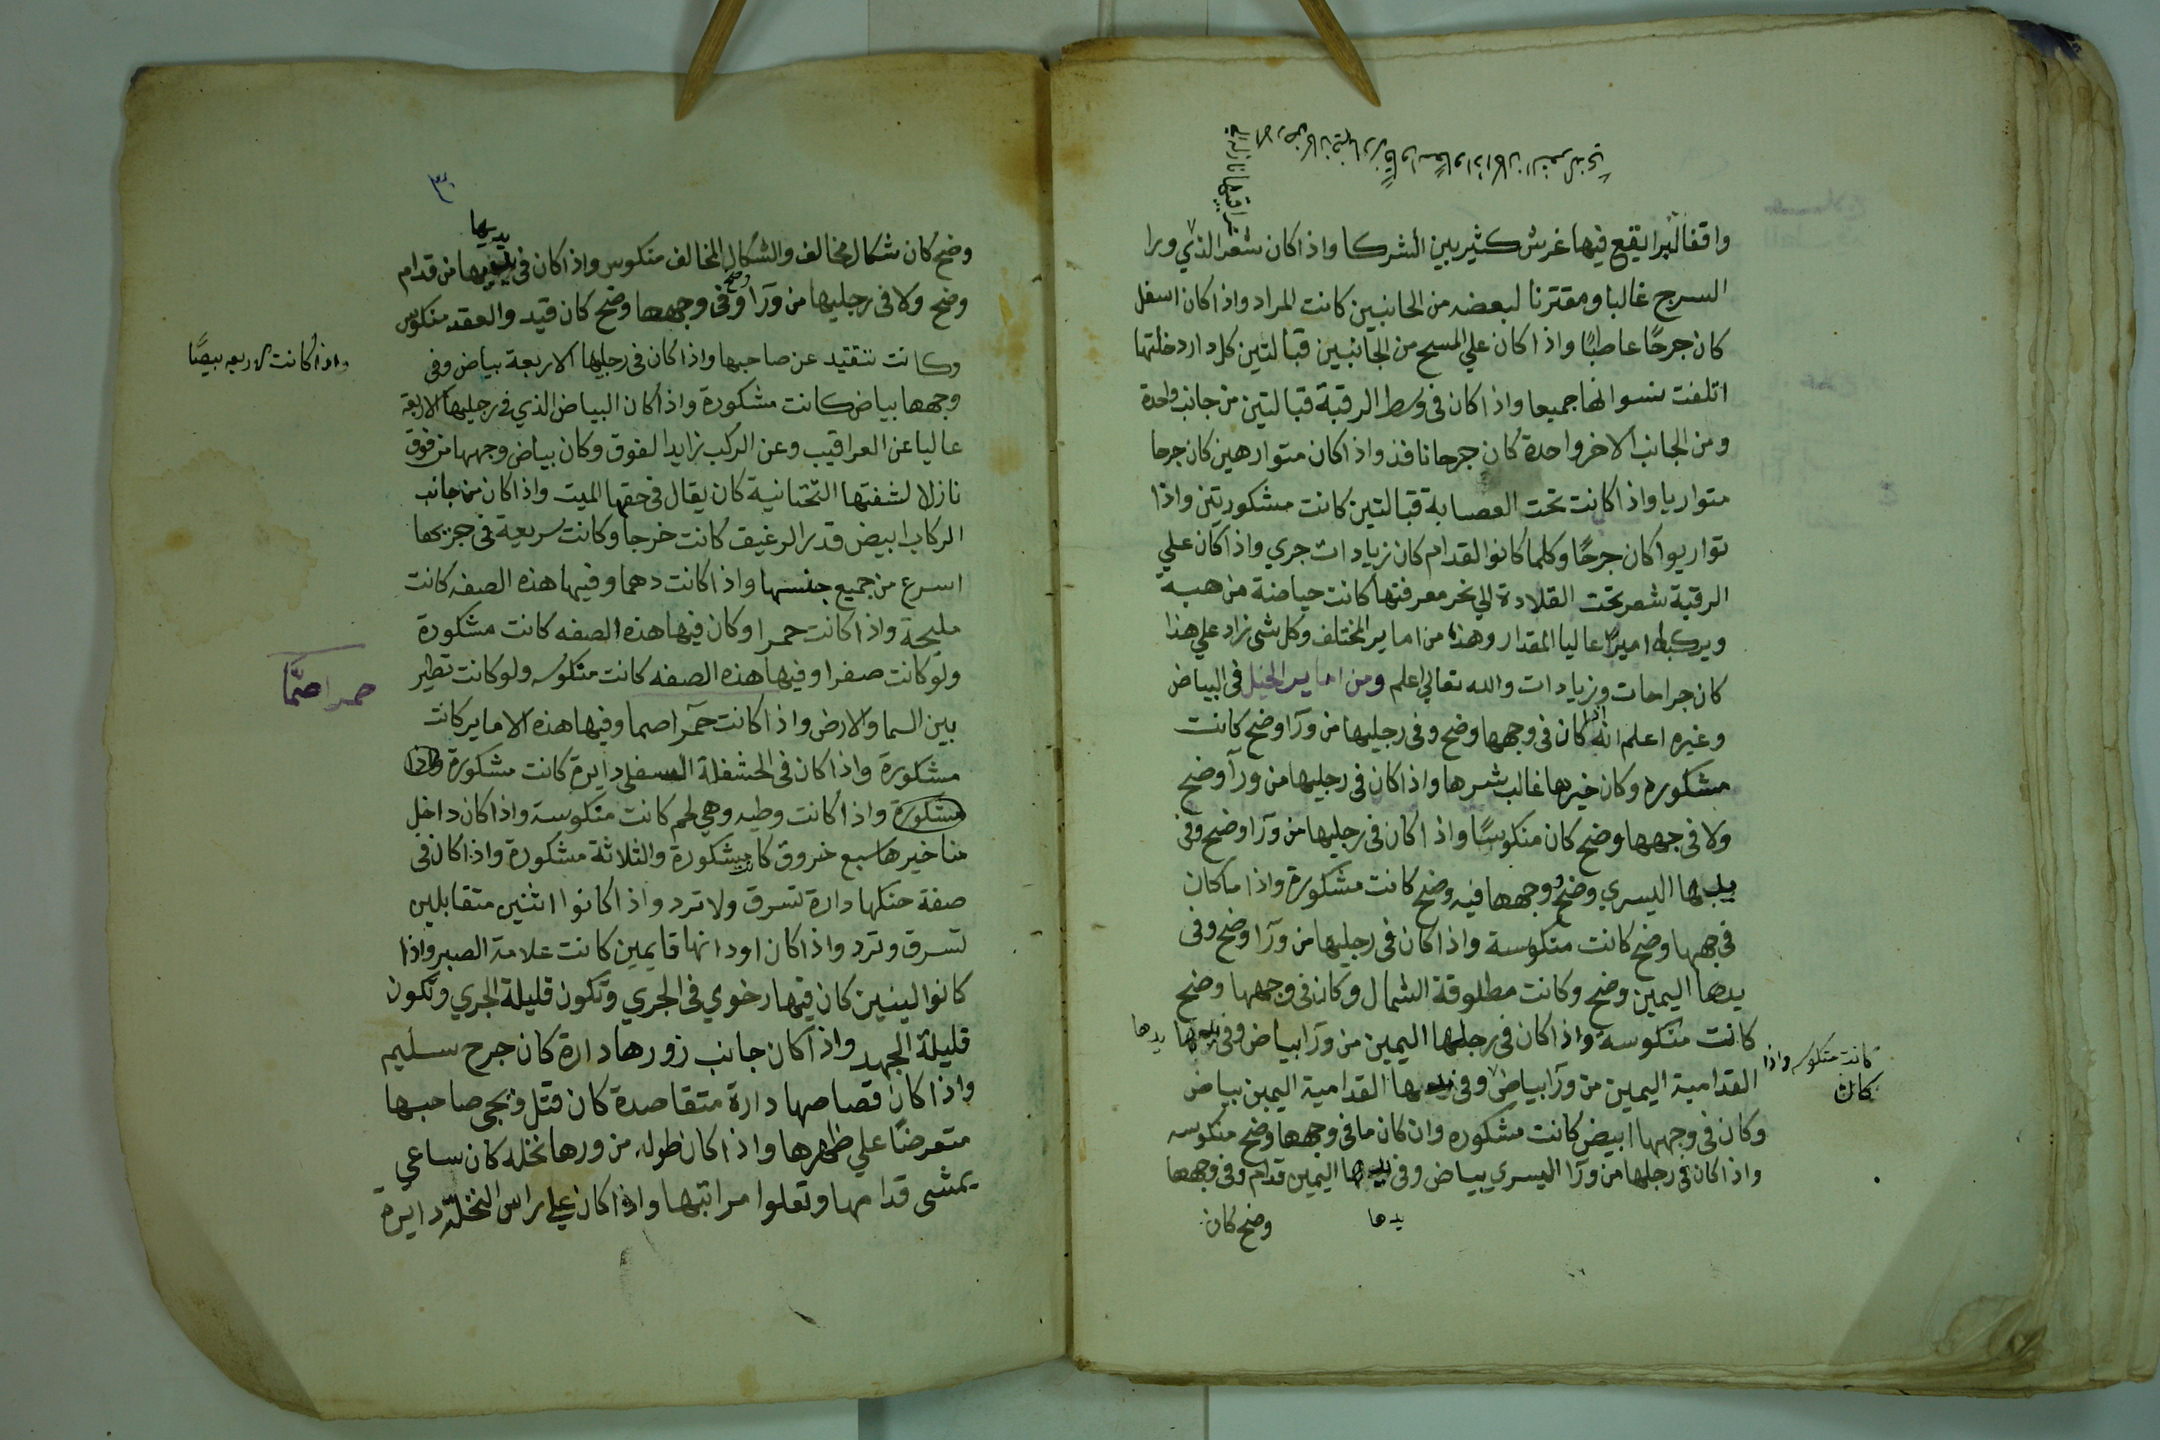 واقفا لبرا يقع فيها غرش كثير بين الشركا واذا كان شعر الذي ورا
السرج غالبا ومقترنا لبعضه من الجانبين كانت المراد واذا كان اسفل
كان جرحًا عاطبًا واذا كان علي المسح من الجانبين قبالتين كل دار دخلتها
اتلفت نسوانها جميعا واذا كان فى وسط الرقبة قبالتين من جانب واحدة
ومن الجانب الاخر واحدة كان جرحا نافذ واذا كان متوارهين كان جرحا
متواريا واذا كانت تحت العصابة قبالتين كانت مشكوريتين واذا
تواريوا كان جرحًا وكلما كانوا القدام كان زيادات جري واذا كان علي
الرقبة شعر تحت القلادة الي نحر معرفتها كانت حياصة من هبة
ويركبها اميرًا عاليا المقدار وهذه من اماير المختلف وكل شى زاد علي هذا
كان جراحات وزيادات والله تعالي اعلم ومن اماير الخيل فى البياض
وغيره اعلم انه اذا كان فى وجهها وضح وفى رجليها من ورآ وضح كانت
مشكوره وكان خيرها غالب شرها واذا كان فى رجليها من ورآ وضح
ولا فى جهها وضح كان منكوسًا واذا كان فى رجليها من ورآ وضح وفى
يدها اليسري وضح ووجهها فيه وضح كانت مشكورة واذا ما كان
فى جهها وضح كانت منكوسة واذا كان فى رجليها من ورآ وضح وفى
يدها اليمين وضح وكانت مطلوقة الشمال وكان فى وجهها وضح
كانت منكوسة واذا كان فى رجلها اليمين من ورآ بياض وفى يدها يدها
القدامية اليمين من ورآ بياض وفى يدها القدامية اليمين بياض
كانت منكوسه واذا
كان
وكان فى وجهها ابيض كانت مشكوره وان كان ما فى وجهها وضح منكوسه
واذا كان فى رجلها من ورآ اليسري بياض وفى يدها اليمين قدام وفى وجهها
يدها
وضح كان
٣٠
وضح كان شكال مخالف والشكال المخالف منكوس واذا كان فى يديها من قدام
يديها
وضح ولا فى رجليها من ورآ وضح وفى وجهها وضح كان قيد والعقد منكوس
وكانت تنقتيد عن صاحبها واذا كان فى رجليها الاربعة بياض وفى
واذا كانت الاربعه بيضًا
وجهها بياض كانت مشكورة واذا كان البياض الذي فى رجليها الاربعة
عاليا عن العراقيب وعن الركب زايدا لفوق وكان بياض وجهها من فوق
نازلا لشفتها التحتانية كان يقال فى حقها الميت واذا كان من جانب
الركاب ابيض قدر الرغيف كانت خرجا وكانت سريعة فى جريها
اسرع من جميع جنسها واذا كانت دهما وفيها هذه الصفه كانت
مليحة واذا كانت حمرا وكان فيها هذه الصفه كانت مشكورة
ولو كانت صفرا وفيها هذه الصفه كانت منكوسه ولو كانت تطير
حمرا صمًّا
بين السما والارض واذا كانت حمرآ صما وفيها هذه الاماير كانت
مشكورة واذا كان فى الحشفلة السفلي دايرة كانت مشكورة واذا
مشكورة واذا كانت وطيه وهي لحم كانت منكوسة واذا كان داخل
مناخيرها سبع خروق كانت مشكورة والثلاثة مشكورة واذا كان فى
صفة حنكها دارة تسرق ولا ترد واذا كانوا اثنين متقابلين
تسرق وترد واذا كان اودانها قايمين كانت علامة الصبر واذا
كانوا لينين كان فيها رخوي فى الجري وتكون قليلة الجري وتكون
قليلة الجهد واذا كان جانب زورها دارة كان جرح سليم
واذا كان قصاصها دارة متقاصدة كان قتل ويجى صاحبها
متعرضًا علي ظهرها واذا كان طوله من ورها نخله كان ساعي
يمشى قدامها وتعلوا مراتبها واذا كان علي راس النخلة دايرة